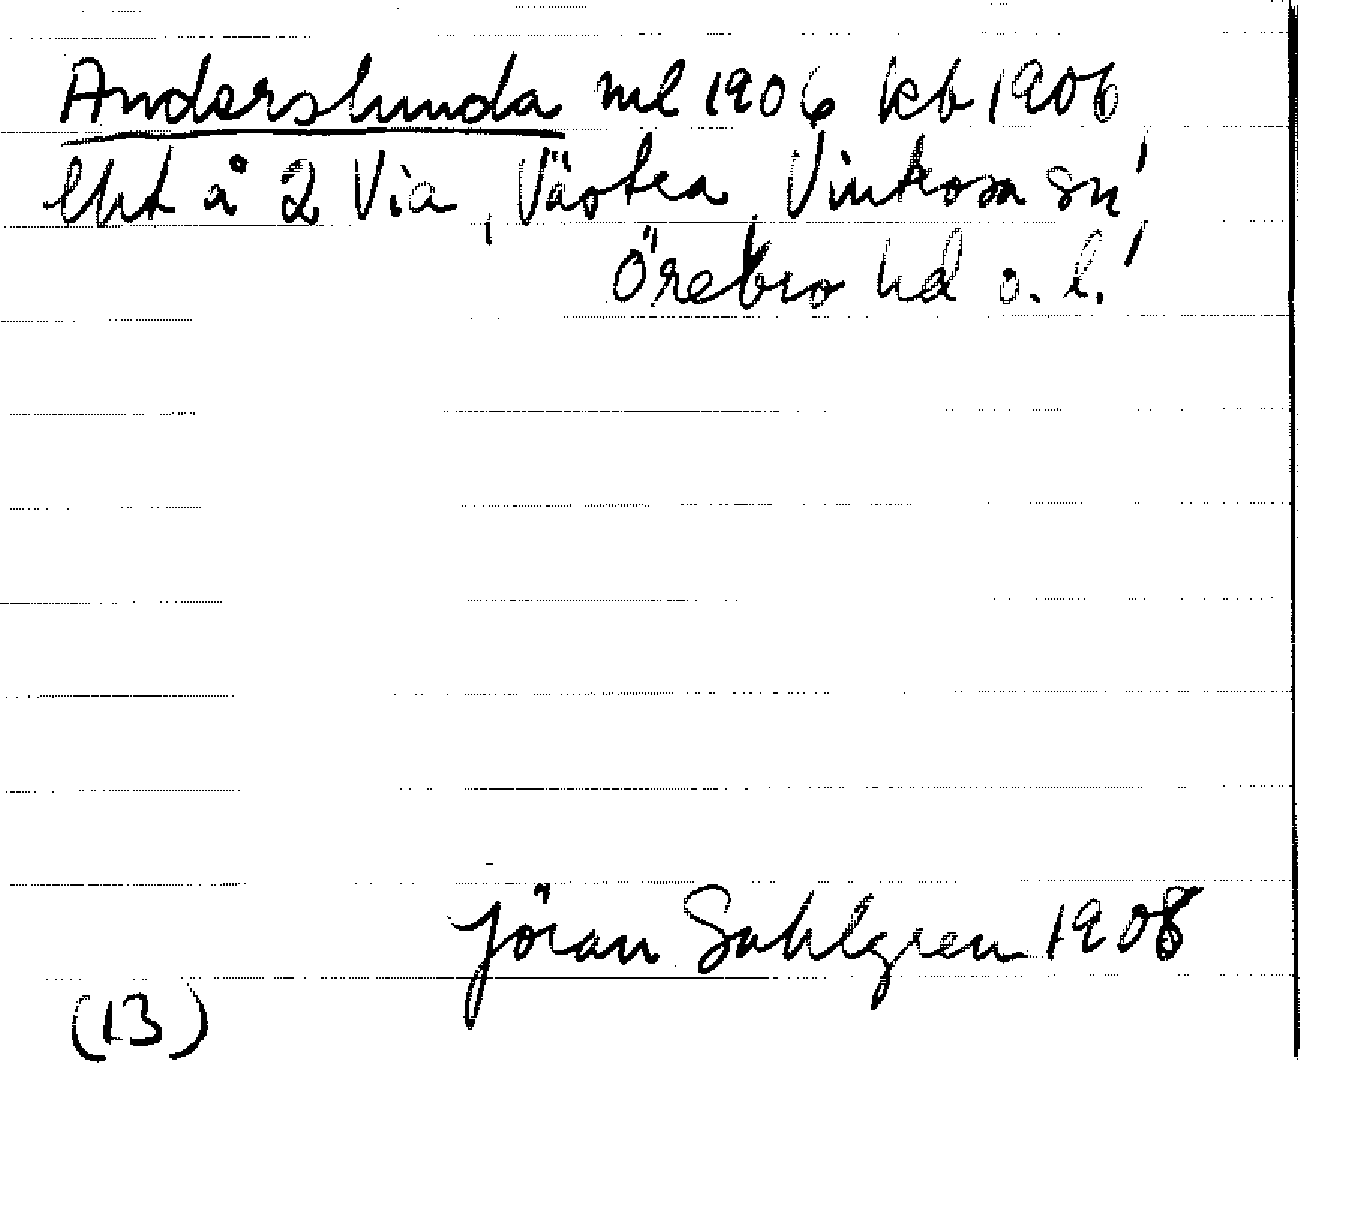 Anderslunda ml 1906 kb 1906
lht å 2 Via, Västra Vintrosa sn,
Örebro hd o. l.
Jöran Sahlgren 1908
(13)